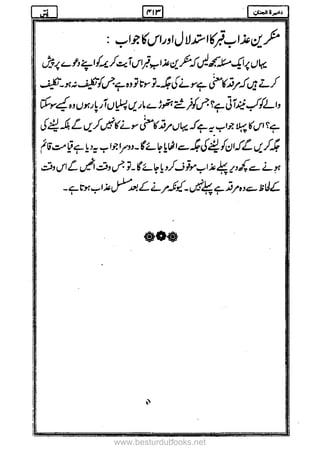 ذخیرۃ الجنان
۴۱۳
یٰسٓ
منکرین عذاب قبر کا استدلال اور اس کا جواب :
یہاں پر ایک مسئلہ سمجھ لیں کہ منکرین عذاب قبر اس آیت کریمہ کو اپنے دعوے پر پیش
کرتے ہیں کہ مرقد کا معنیٰ ہے سونے کی جگہ۔ تو سوتا تو وہ ہے جس کو تکلیف نہ ہو۔ تکلیف
والے کو کب نیند آتی ہے؟ جس کو فرشتے ہتھوڑے ماریں پسلیاں آر پار ہوں وہ کیسے سو سکتا
ہے؟ اس کا پہلا جواب یہ ہے کہ یہاں مرقد کا معنیٰ سونے کا نہیں کریں گے بلکہ لیٹنے کی
جگہ کریں گے کہ ان کو لیٹنے کی جگہ سے اٹھایا جائے گا۔ دوسرا جواب یہ دیا ہے قیامت قائم
ہونے سے کچھ دیر پہلے عذاب موقوف کر دیا جائے گا۔ تو جس وقت اٹھیں گے اس وقت
کے لحاظ سے وہ مرقد ہے پہلے نہیں۔ کیونکہ مرنے کے بعد مسلسل عذاب ہوتا ہے۔
www.besturdubooks.net